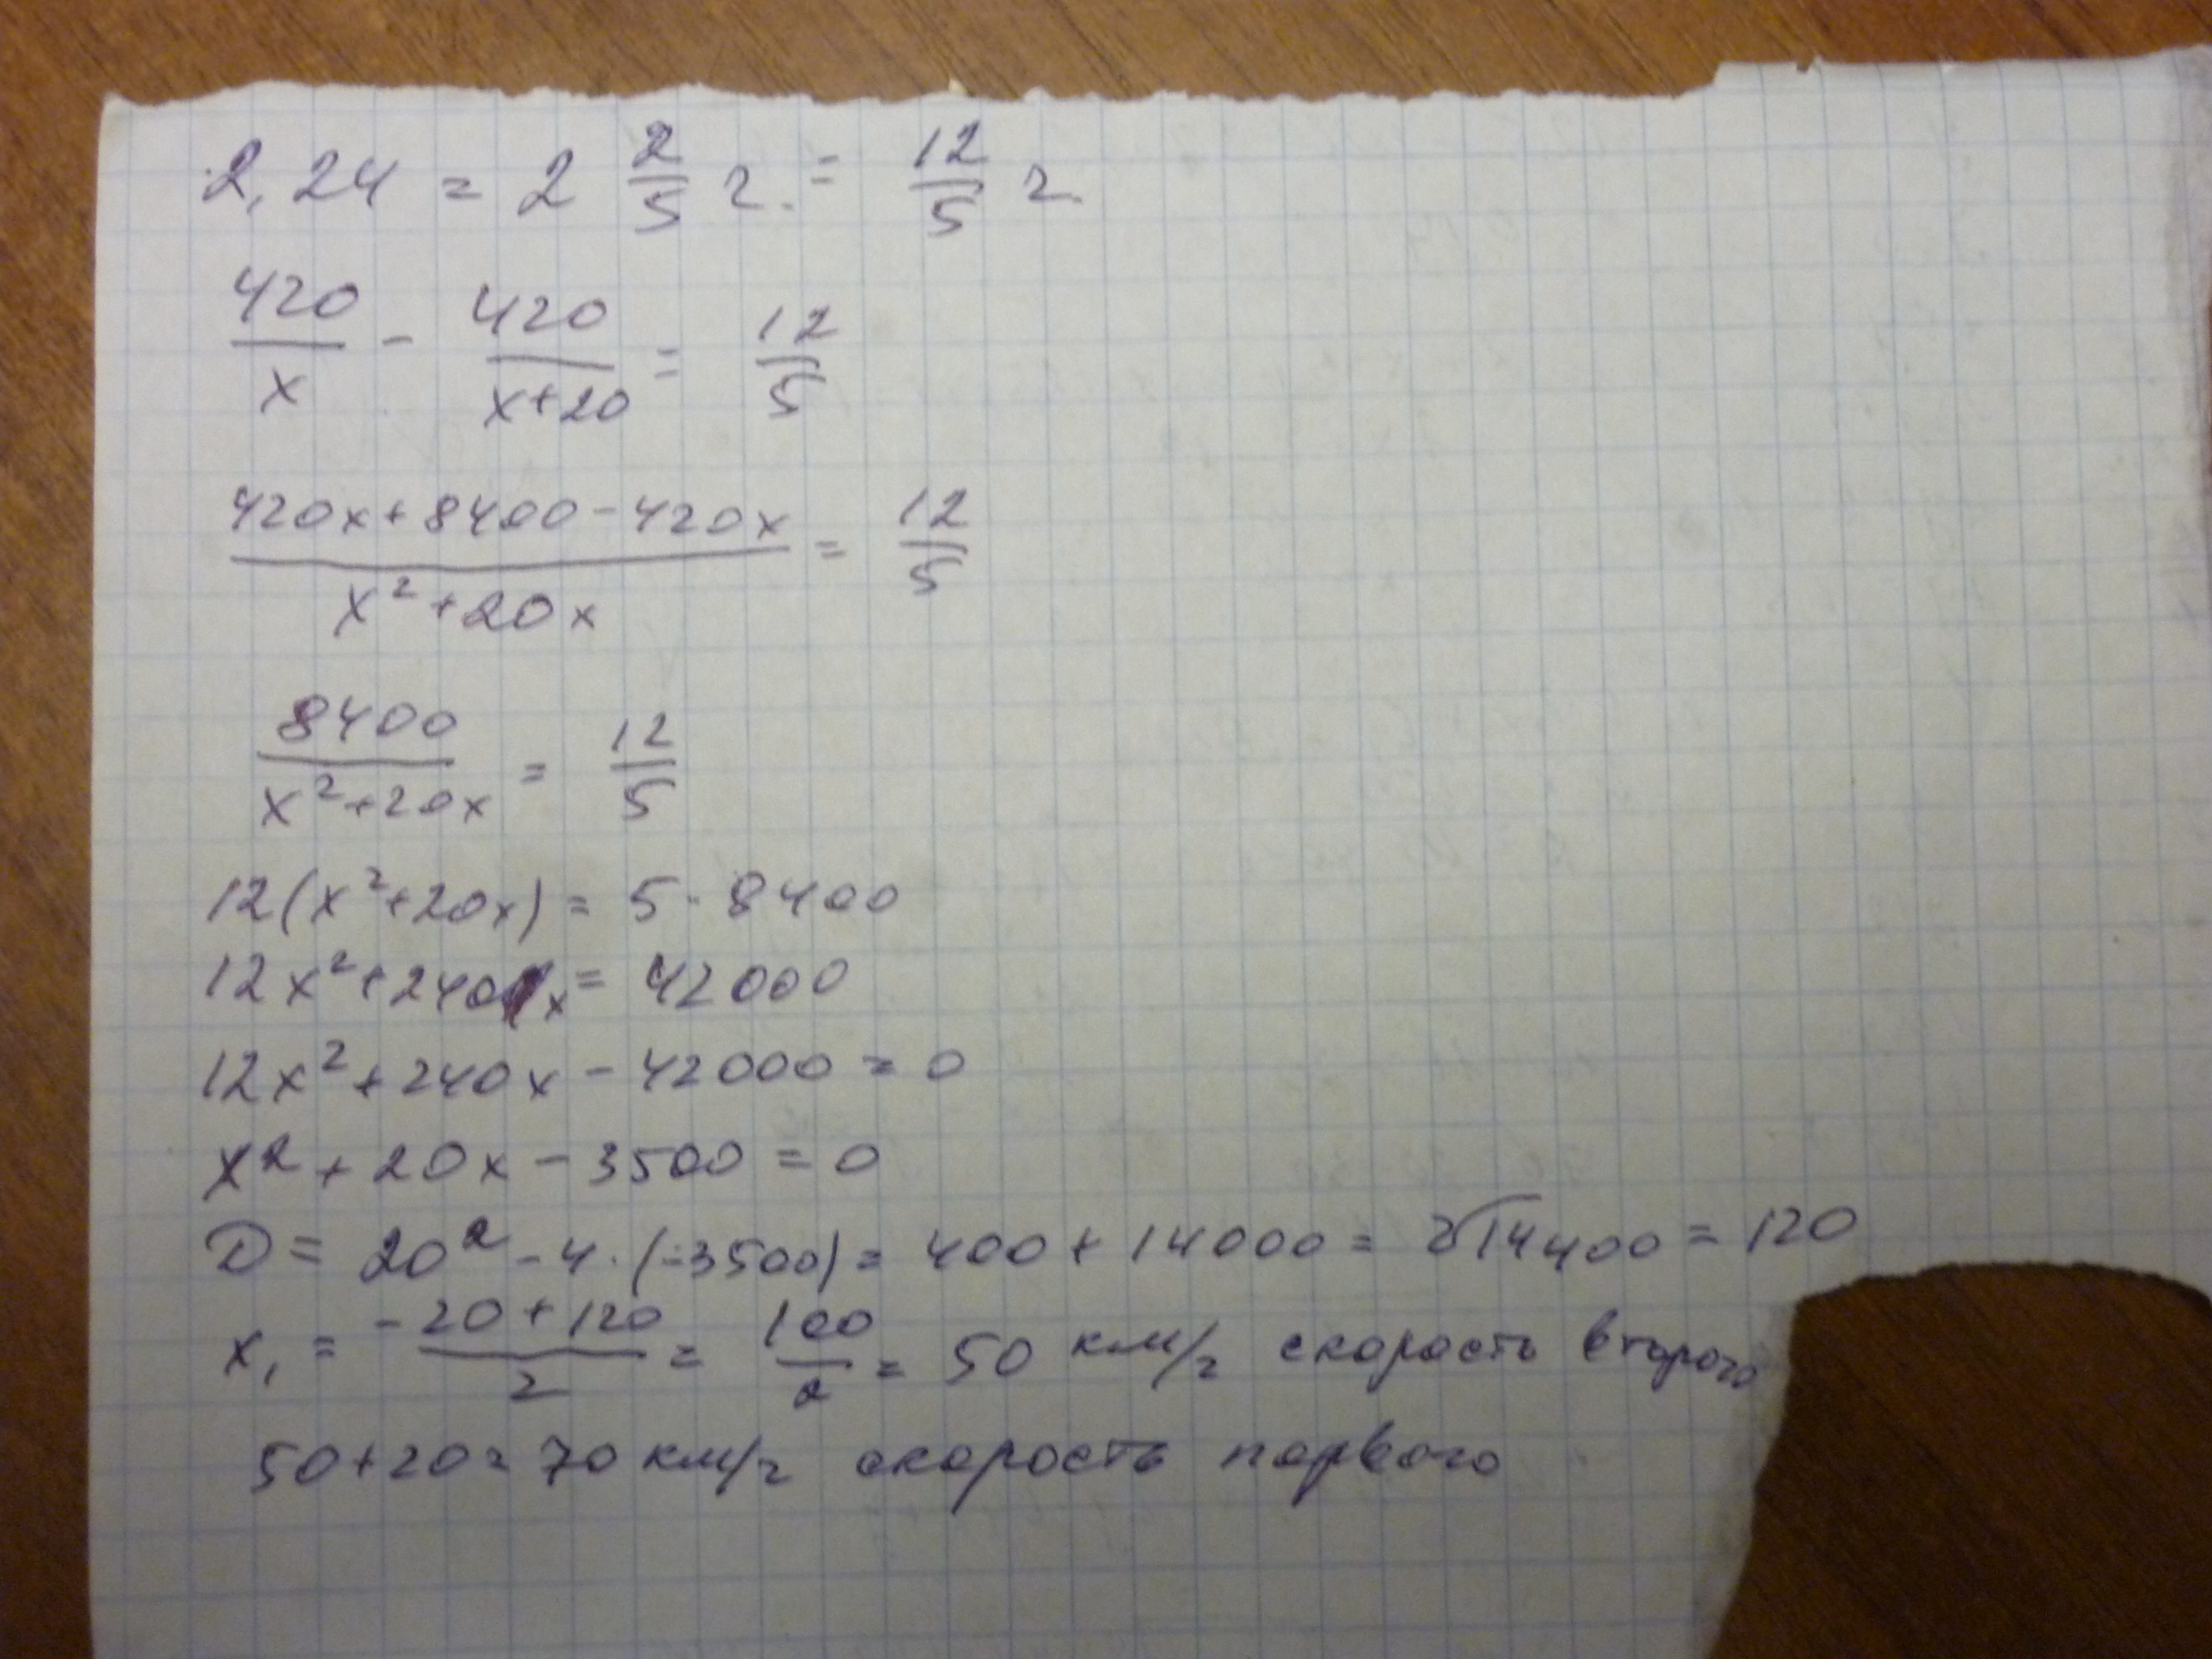 2,24 = 2 2/5 ч. = 12/5 ч.
420/x - 420/x+20 = 12/5
420x+8400-420x/x²+20x = 12/5
8400/x²+20x = 12/5
12(x²+20x) = 5·8400
12x²+240x = 42000
12x²+240x-42000=0
x²+20x-3500=0
D = 20²-4·(-3500)= 400+14000 = √14400 = 120
x₁ = -20+120/2 = 100/2 = 50 км/ч скорость второго
50+20=70 км/ч скорость первого